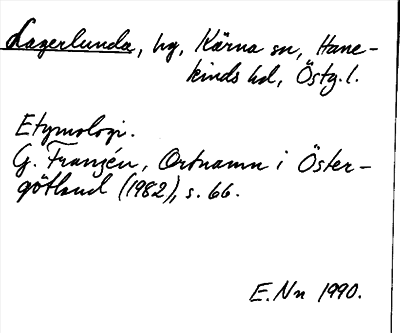 Lagerlunda, hg, Kärna sn, Hane-
kinds hd, Östg.l.
Etymologi.
G. Franzén, Ortnamn i Öster-
götland (1982), s. 66.
E.Nn 1990.